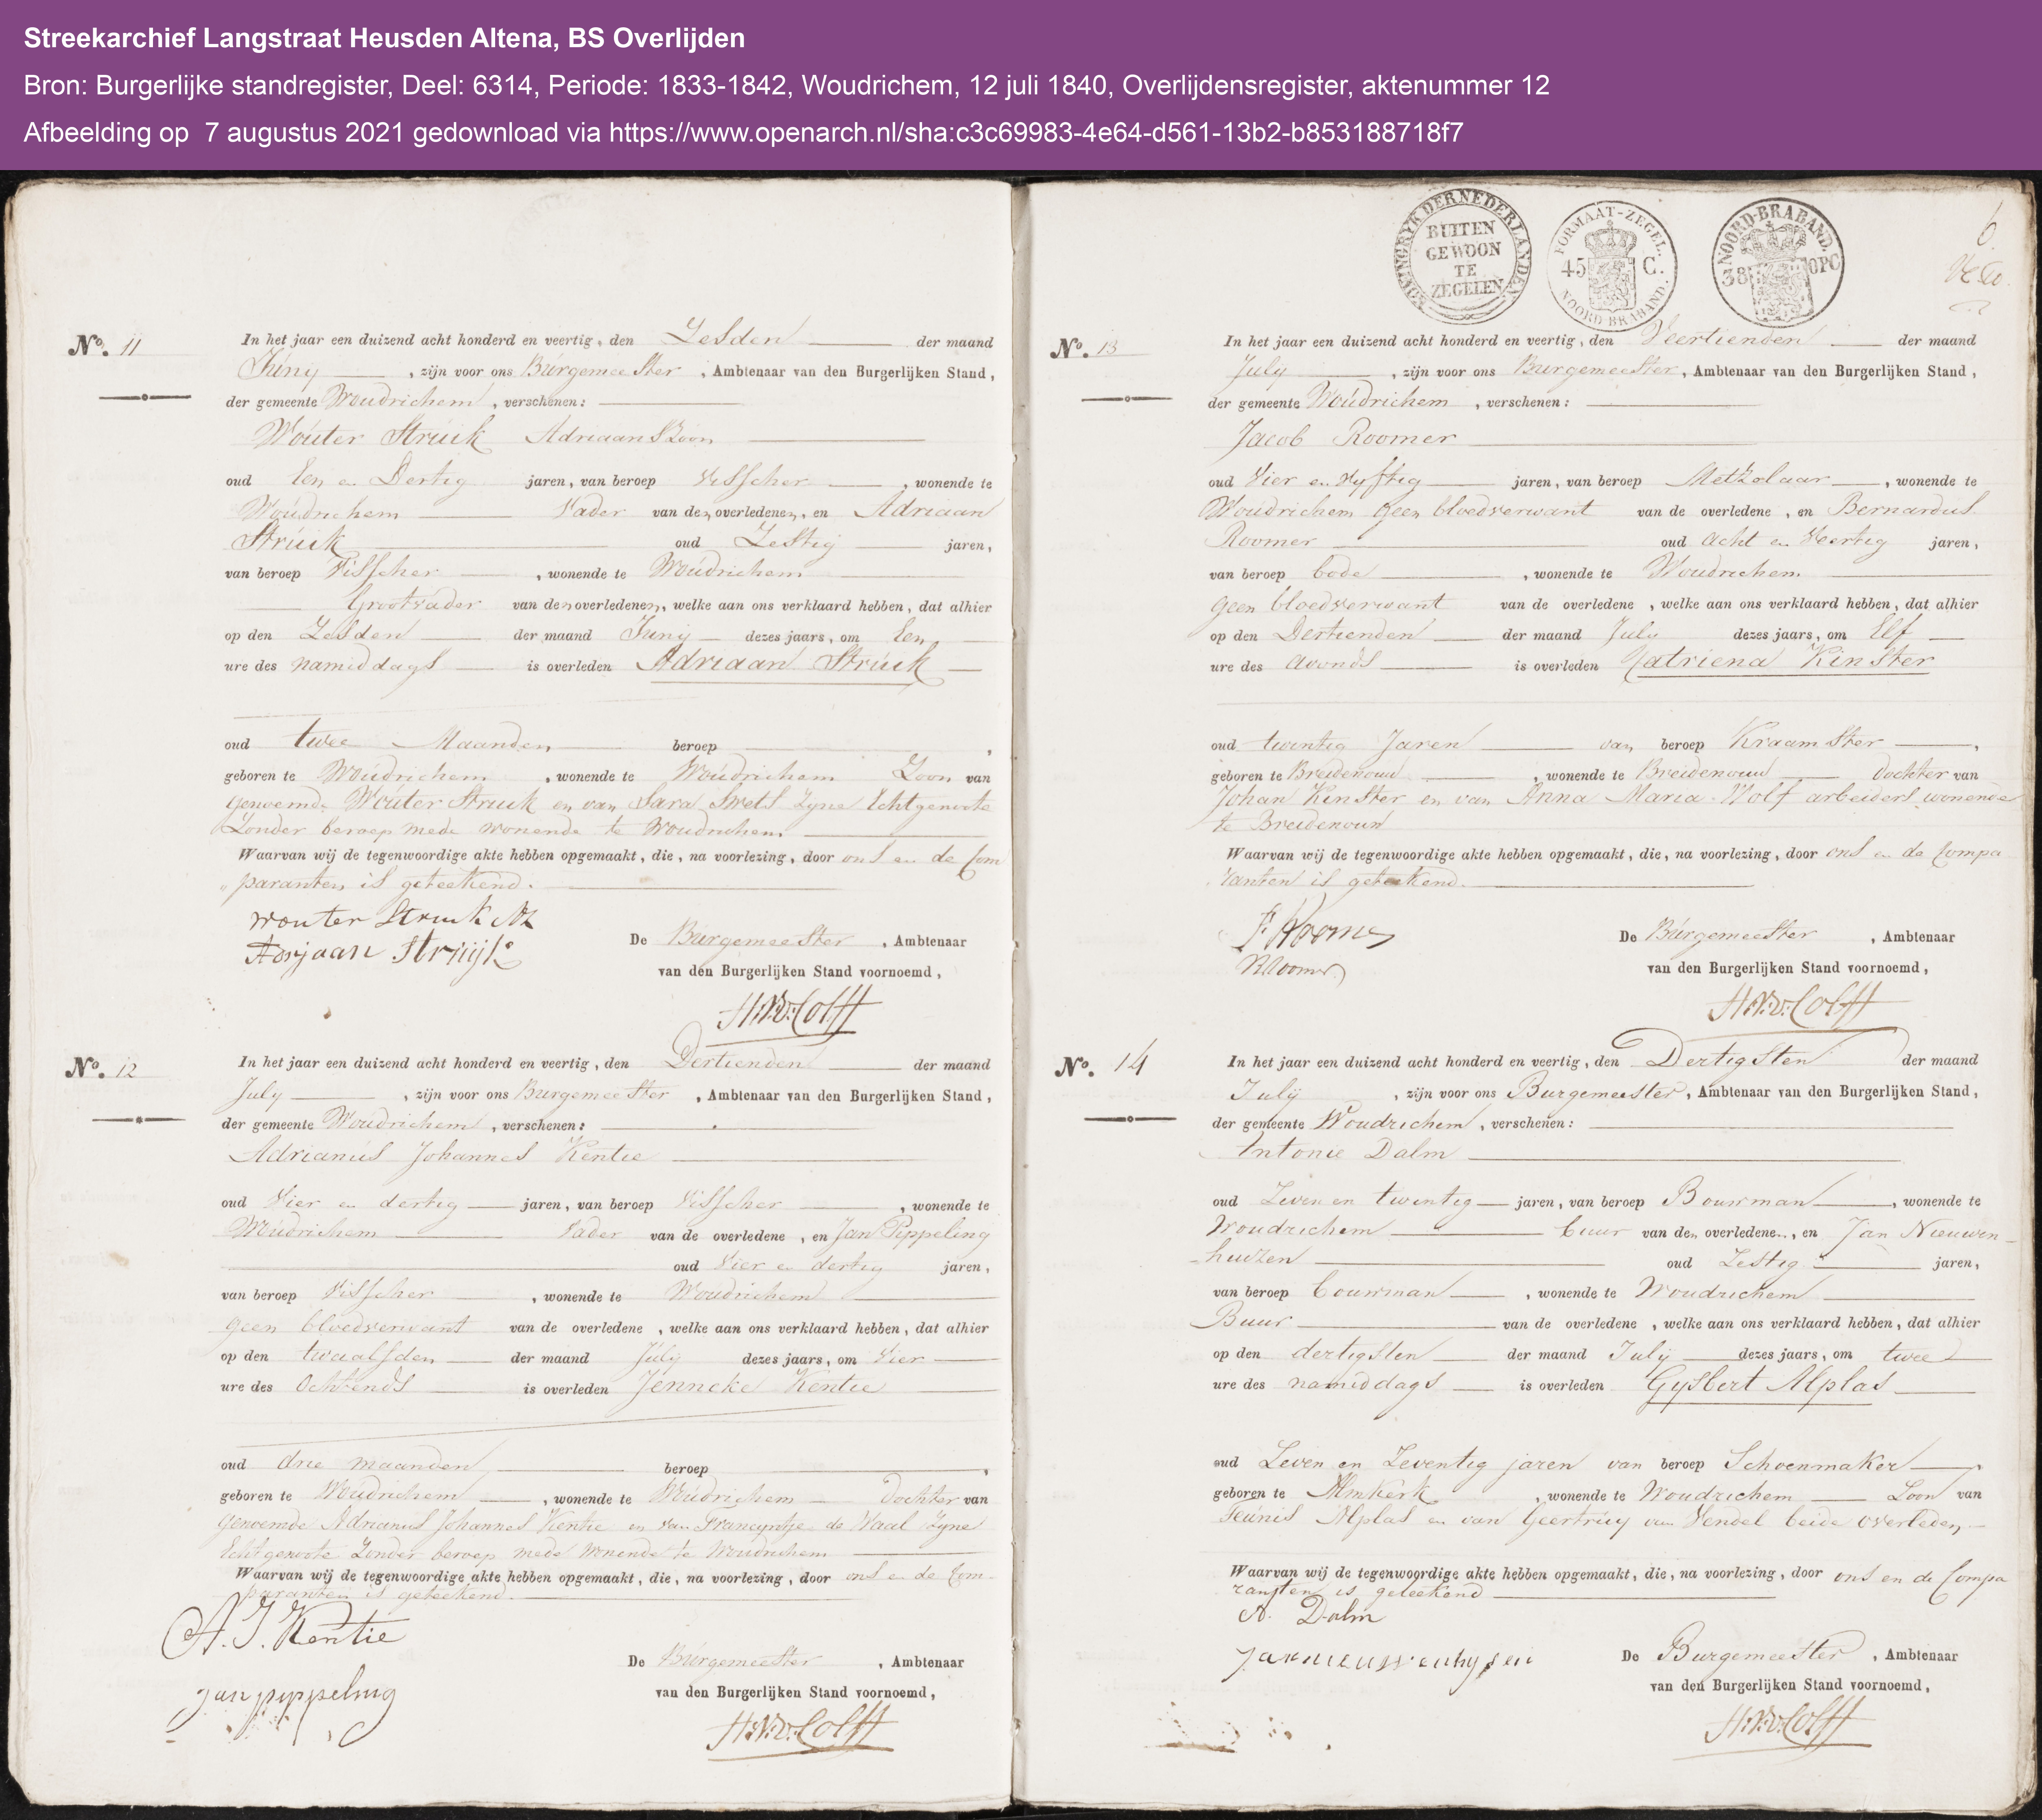 Streekarchief Langstraat Heusden Altena, BS Overlijden
Bron: Burgerlijke standregister, Deel: 6314, Periode: 1833-1842, Woudrichem, 12 juli 1840, Overlijdensregister, aktenummer 12
Afbeelding op 7 augustus 2021 gedownload via https://www.openarch.nl/sha:c3c69983-4e64-d561-13b2-b853188718f7
No. 11
In het jaar een duizend acht honderd en veertig, den Zesden der maand
Juny, zijn voor ons Burgemeester, Ambtenaar van den Burgerlijken Stand,
der gemeente Woudrichem, verschenen:
Wouter Struik Adriaans Zoon
oud Een en Dertig jaren, van beroep Visscher, wonende te
Woudrichem Vader van den overledenen, en Adriaan
Struik oud Zestig jaren,
van beroep Visscher, wonende te Woudrichem
Grootvader van den overledenen, welke aan ons verklaard hebben, dat alhier
op den Zesden der maand Juny dezes jaars, om Een
ure des namiddags is overleden Adriaan Struik
oud twee Maanden beroep ,
geboren te Woudrichem, wonende te Woudrichem Zoon van
genoemde Wouter Struik en van Sara Smets Zyne Echtgenoote
Zonder beroep mede wonende te Woudrichem
Waarvan wij de tegenwoordige akte hebben opgemaakt, die, na voorlezing, door ons en de Com
paranten is geteekend.
wouter Struik AZ
Adrjaan Struijk
De Burgemeester, Ambtenaar
van den Burgerlijken Stand voornoemd,
No. 12
In het jaar een duizend acht honderd en veertig, den Dertienden der maand
July, zijn voor ons Burgemeester, Ambtenaar van den Burgerlijken Stand,
der gemeente Woudrichem, verschenen:
Adrianus Johannes Kentie
oud Vier en dertig jaren, van beroep Visscher, wonende te
Woudrichem Vader van de overledene, en Jan Pippeling
oud Vier en dertig jaren,
van beroep Visscher, wonende te Woudrichem
geen bloedverwant van de overledene, welke aan ons verklaard hebben, dat alhier
op den twaalfden der maand July dezes jaars, om Vier
ure des Ochtends is overleden Jenneke Kentie
oud drie maanden beroep ,
geboren te Woudrichem, wonende te Woudrichem Dochter van
genoemde Adrianus Johannes Kentie en van Francyntje de Waal Zyne
Echtgenoote Zonder beroep mede wonende te Woudrichem
Waarvan wij de tegenwoordige akte hebben opgemaakt, die, na voorlezing, door ons en de Com-
paranten is geteekend.
A. J. Kentie
Jan pippeling
De Burgemeester, Ambtenaar
van den Burgerlijken Stand voornoemd,
KONINGRYK DER NEDERLANDEN
BUITEN
GEWOON
TE
ZEGELEN
FORMAAT-ZEGEL.
45 C.
NOORD-BRABAND.
NOORD-BRABAND.
38 OPC
6
No. 13
In het jaar een duizend acht honderd en veertig, den Veertienden der maand
July, zijn voor ons Burgemeester, Ambtenaar van den Burgerlijken Stand,
der gemeente Woudrichem, verschenen:
Jacob Roomer
oud Vier en Vyftig jaren, van beroep Metzelaar, wonende te
Woudrichem geen bloedverwant van de overledene, en Bernardus
Roomer oud acht en Veertig jaren,
van beroep bode, wonende te Woudrichem
geen bloedverwant van de overledene, welke aan ons verklaard hebben, dat alhier
op den Dertienden der maand July dezes jaars, om Elf
ure des avonds is overleden Catriena Kinster
oud twintig Jaren van beroep Kraamster,
geboren te Breidenouw, wonende te Breidenouw Dochter van
Johan Kinster en van Anna Maria Wolf arbeiders wonende
te Breidenouw
Waarvan wij de tegenwoordige akte hebben opgemaakt, die, na voorlezing, door ons en de Compa
ranten is geteekend.
De Burgemeester, Ambtenaar
van den Burgerlijken Stand voornoemd,
No. 14
In het jaar een duizend acht honderd en veertig, den Dertigsten der maand
July, zijn voor ons Burgemeester, Ambtenaar van den Burgerlijken Stand,
der gemeente Woudrichem, verschenen:
Antonie Dalm
oud Zeven en twintig jaren, van beroep Bouwman, wonende te
Woudrichem buur van den overledenen, en Jan Nieuwen-
huizen oud Zestig jaren,
van beroep bouwman, wonende te Woudrichem
Buur van de overledene, welke aan ons verklaard hebben, dat alhier
op den dertigsten der maand July dezes jaars, om twee
ure des namiddags is overleden Gysbert Alplas
oud Zeven en Zeventig jaren van beroep Schoenmaker
geboren te Almkerk, wonende te Woudrichem Zoon van
Teunis Alplas en van Geertruy van Vendel beide overleden
Waarvan wij de tegenwoordige akte hebben opgemaakt, die, na voorlezing, door ons en de Compa
ranten is geteekend
A. Dalm
De Burgemeester, Ambtenaar
van den Burgerlijken Stand voornoemd,